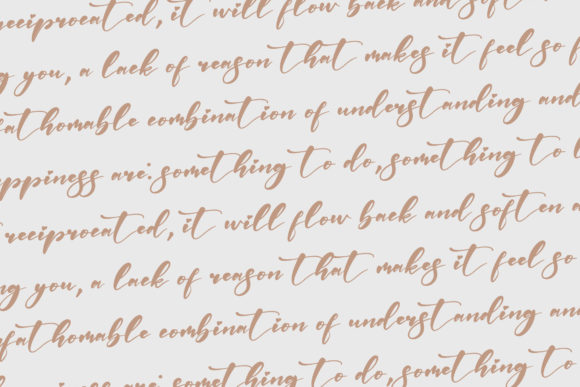 reciprocated, it will flow back and soft
g you, a lack of reason that makes it feel so f
fathomable combination of understanding and
appiness are: something to do, something to l
reciprocated, it will flow back and soften a
ng you, a lack of reason that makes it feel so
nfathomable combination of understanding and
are: something to do, something to